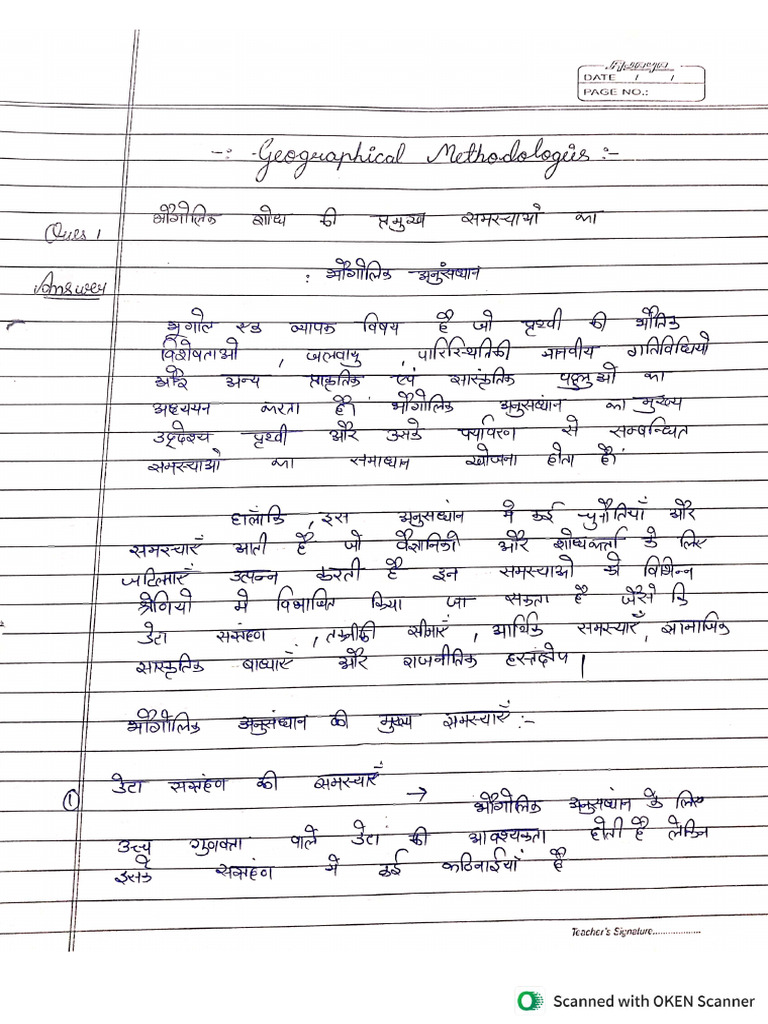 DATE / /
PAGE NO.:
-: Geographical Methodologies :-
Ques 1 भौगोलिक शोध की प्रमुख समस्याओं का
Answer : भौगोलिक अनुसंधान
भूगोल एक व्यापक विषय है जो पृथ्वी की भौतिक
विशेषताओ , जलवायु , पारिस्थितिकी मानवीय गतिविधियो
और अन्य प्राकृतिक एवं सांस्कृतिक पहलुओ का
अध्ययन करता है। भौगोलिक अनुसंधान का मुख्य
उद्देश्य पृथ्वी और उसके पर्यावरण से सम्बन्धित
समस्याओ का समाधान खोजना होता है।
हालाँकि , इस अनुसंधान मे कई चुनौतियाँ और
समस्याएँ आती है जो वैज्ञानिको और शोधकर्ता के लिए
जटिलाएँ उत्पन्न करती है इन समस्याओ को विभिन्न
श्रेणियो मे विभाजित किया जा सकता है जैसे कि
डेटा संग्रहण , तकनीकी सीमाएँ , आर्थिक समस्याएँ, सामाजिक
सांस्कृतिक बाधाएँ और राजनीतिक हस्तक्षेप |
भौगोलिक अनुसंधान की मुख्य समस्याएँ :-
① डेटा संग्रहण की समस्याएँ → भौगोलिक अनुसंधान के लिए
उच्च गुणवत्ता वाले डेटा की आवश्यकता होती है लेकिन
इसके संग्रहण मे कई कठिनाईयां है
Teacher's Signature..................
Scanned with OKEN Scanner